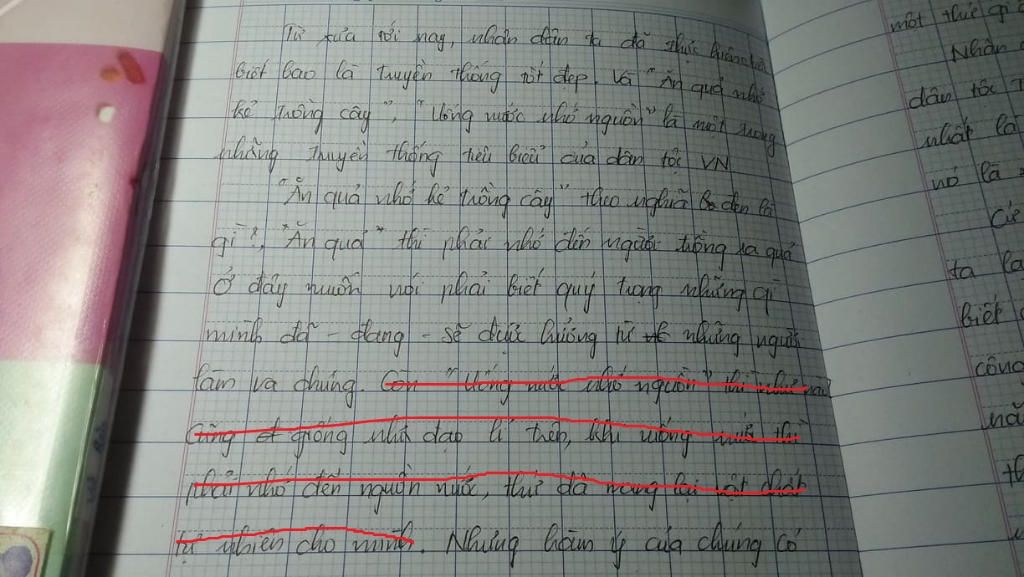 Từ xưa tới nay, nhân dân ta đã thực
biết bao là truyền thống tốt đẹp. Và "Ăn quả nhớ
kẻ trồng cây", "Uống nước nhớ nguồn" là một trong
những truyền thống tiêu biểu của dân tộc VN
"Ăn quả nhớ kẻ trồng cây" theo nghĩa đen là
gì?, "Ăn quả" thì phải nhớ đến người trồng ra quả
Ở đây muốn nói phải biết quý trọng những gì
mình đã - đang - sẽ được hưởng từ những người
làm ra chúng. Còn "Uống nước nhớ nguồn" thì
cũng giống như đạo lí trên, khi uống nước thì
phải nhớ đến nguồn nước, thứ đã mang lại vật chất
tự nhiên cho mình. Nhưng hàm ý của chúng có
một thứ
Nhân
dân tộc
nhất là
nó là
ta
biết
công